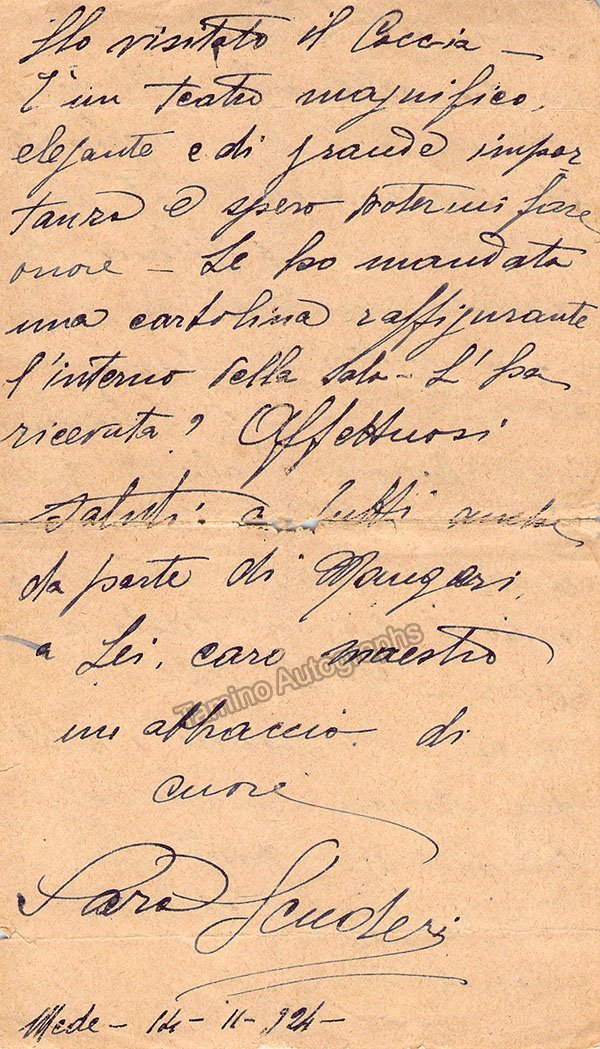 Ho visitato il Coccia –
È un teatro magnifico,
elegante e di grande impor-
tanza e spero potermi fare
onore – Le ho mandata
una cartolina raffigurante
l'interno della sala – L'ha
ricevuta? Affettuosi
saluti a tutti anche
da parte di Mangeri,
a Lei, caro maestro
un abbraccio di
cuore
Sara Scuderi
Mede – 14 – 11 – 924 –
Tamino Autographs